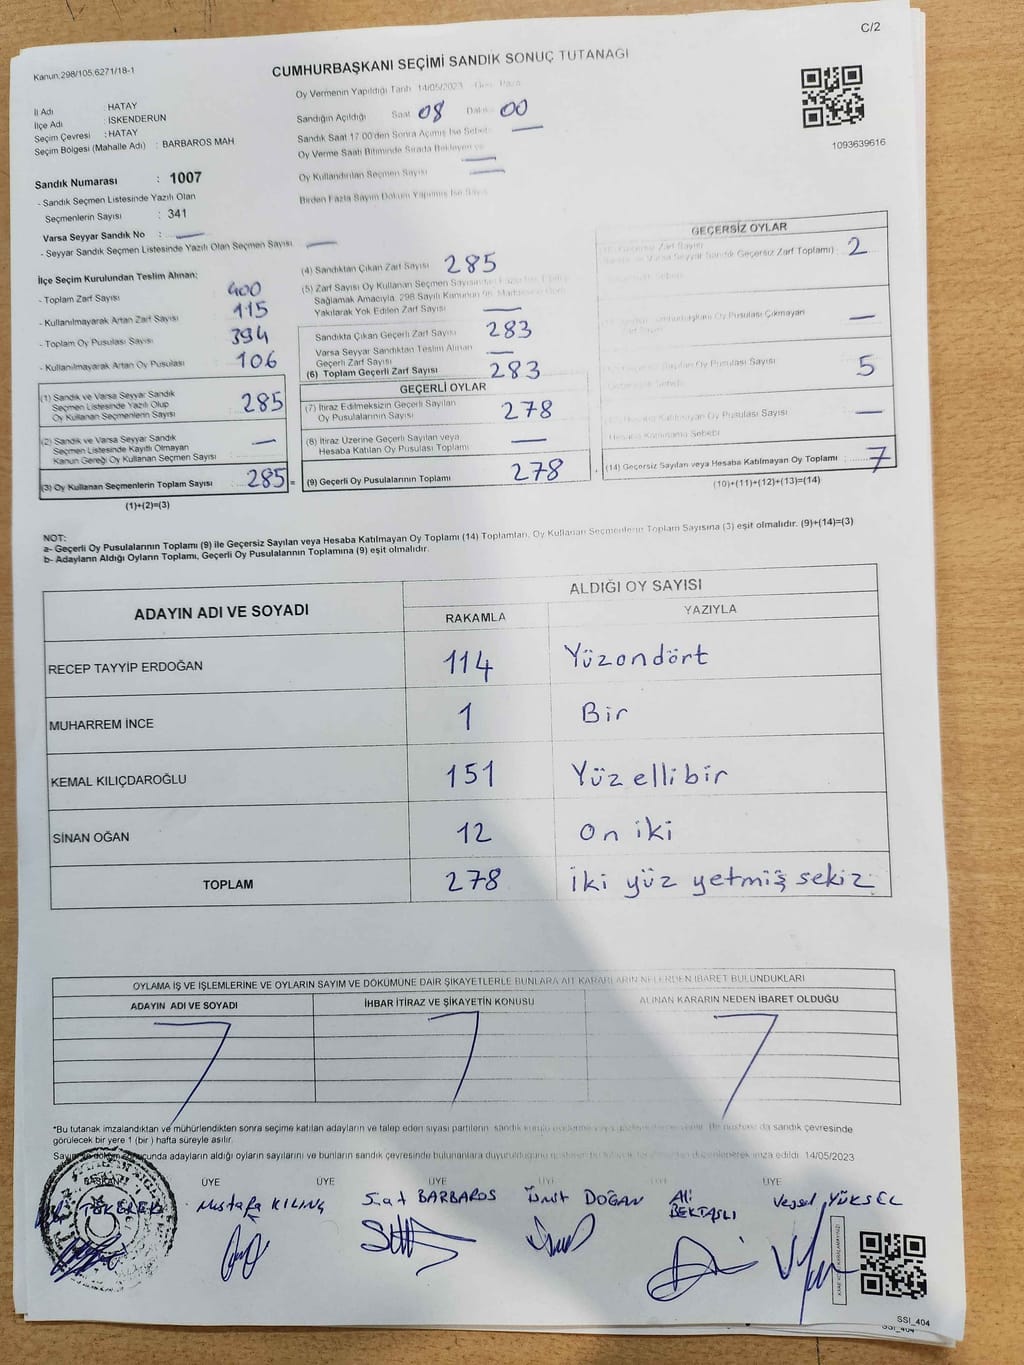 C/2
Kanun.298/105.6271/18-1
CUMHURBAŞKANI SEÇİMİ SANDIK SONUÇ TUTANAĞI
İl Adı : HATAY
İlçe Adı : İSKENDERUN
Seçim Çevresi : HATAY
Seçim Bölgesi (Mahalle Adı) : BARBAROS MAH
Oy Vermenin Yapıldığı Tarih 14/05/2023 Pazar
Sandığın Açıldığı Saat 08 Dakika 00
Sandık Saat 17.00'den Sonra Açılmış İse Sebebi
Oy Verme Saati Bitiminde Sırada Bekleyen ve
Oy Kullandırılan Seçmen Sayısı
Birden Fazla Sayım Döküm Yapılmış İse Sayısı
1093639616
Sandık Numarası : 1007
- Sandık Seçmen Listesinde Yazılı Olan
Seçmenlerin Sayısı : 341
Varsa Seyyar Sandık No : —
- Seyyar Sandık Seçmen Listesinde Yazılı Olan Seçmen Sayısı —
İlçe Seçim Kurulundan Teslim Alınan:
- Toplam Zarf Sayısı 400
- Kullanılmayarak Artan Zarf Sayısı 115
- Toplam Oy Pusulası Sayısı 394
- Kullanılmayarak Artan Oy Pusulası 106
(1) Sandık ve Varsa Seyyar Sandık
Seçmen Listesinde Yazılı Olup
Oy Kullanan Seçmenlerin Sayısı 285
(2) Sandık ve Varsa Seyyar Sandık
Seçmen Listesinde Kayıtlı Olmayan
Kanun Gereği Oy Kullanan Seçmen Sayısı —
(3) Oy Kullanan Seçmenlerin Toplam Sayısı 285
(1)+(2)=(3)
(4) Sandıktan Çıkan Zarf Sayısı 285
(5) Zarf Sayısı Oy Kullanan Seçmen Sayısından
Sağlamak Amacıyla, 298 Sayılı Kanunun
Yakılarak Yok Edilen Zarf Sayısı —
Sandıkta Çıkan Geçerli Zarf Sayısı 283
Varsa Seyyar Sandıktan Teslim Alınan
Geçerli Zarf Sayısı —
(6) Toplam Geçerli Zarf Sayısı 283
GEÇERLİ OYLAR
(7) İtiraz Edilmeksizin Geçerli Sayılan
Oy Pusulalarının Sayısı 278
(8) İtiraz Üzerine Geçerli Sayılan veya
Hesaba Katılan Oy Pusulası Toplamı —
(9) Geçerli Oy Pusulalarının Toplamı 278
GEÇERSİZ OYLAR
Varsa Seyyar Sandık Geçersiz Zarf Toplamı) 2
Oy Pusulası Çıkmayan —
Oy Pusulası Sayısı 5
Oy Pusulası Sayısı —
(14) Geçersiz Sayılan veya Hesaba Katılmayan Oy Toplamı 7
(10)+(11)+(12)+(13)=(14)
NOT:
a- Geçerli Oy Pusulalarının Toplamı (9) ile Geçersiz Sayılan veya Hesaba Katılmayan Oy Toplamı (14) Toplamları, Oy Kullanan Seçmenlerin Toplam Sayısına (3) eşit olmalıdır. (9)+(14)=(3)
b- Adayların Aldığı Oyların Toplamı, Geçerli Oy Pusulalarının Toplamına (9) eşit olmalıdır.
ADAYIN ADI VE SOYADI
ALDIĞI OY SAYISI
RAKAMLA YAZIYLA
RECEP TAYYİP ERDOĞAN 114 Yüzondört
MUHARREM İNCE 1 Bir
KEMAL KILIÇDAROĞLU 151 Yüz ellibir
SİNAN OĞAN 12 On iki
TOPLAM 278 iki yüz yetmiş sekiz
OYLAMA İŞ VE İŞLEMLERİNE VE OYLARIN SAYIM VE DÖKÜMÜNE DAİR ŞİKAYETLERLE BUNLARA AİT KARARLARIN NELERDEN İBARET BULUNDUKLARI
ADAYIN ADI VE SOYADI İHBAR İTİRAZ VE ŞİKAYETİN KONUSU ALINAN KARARIN NEDEN İBARET OLDUĞU
*Bu tutanak imzalandıktan ve mühürlendikten sonra seçime katılan adayların ve talep eden siyasi partilerin sandık çevresinde
görülecek bir yere 1 (bir) hafta süreyle asılır.
Sayım ve döküm sonucunda adayların aldığı oyların sayılarını ve bunların sandık çevresinde bulunanlara imza edildi. 14/05/2023
BAŞKAN ÜYE ÜYE ÜYE ÜYE ÜYE ÜYE
Mustafa KILINÇ Suat BARBAROS Ümit DOĞAN Ali BEKTAŞLI Veysel YÜKSEL
SSİ_404
SSİ_404